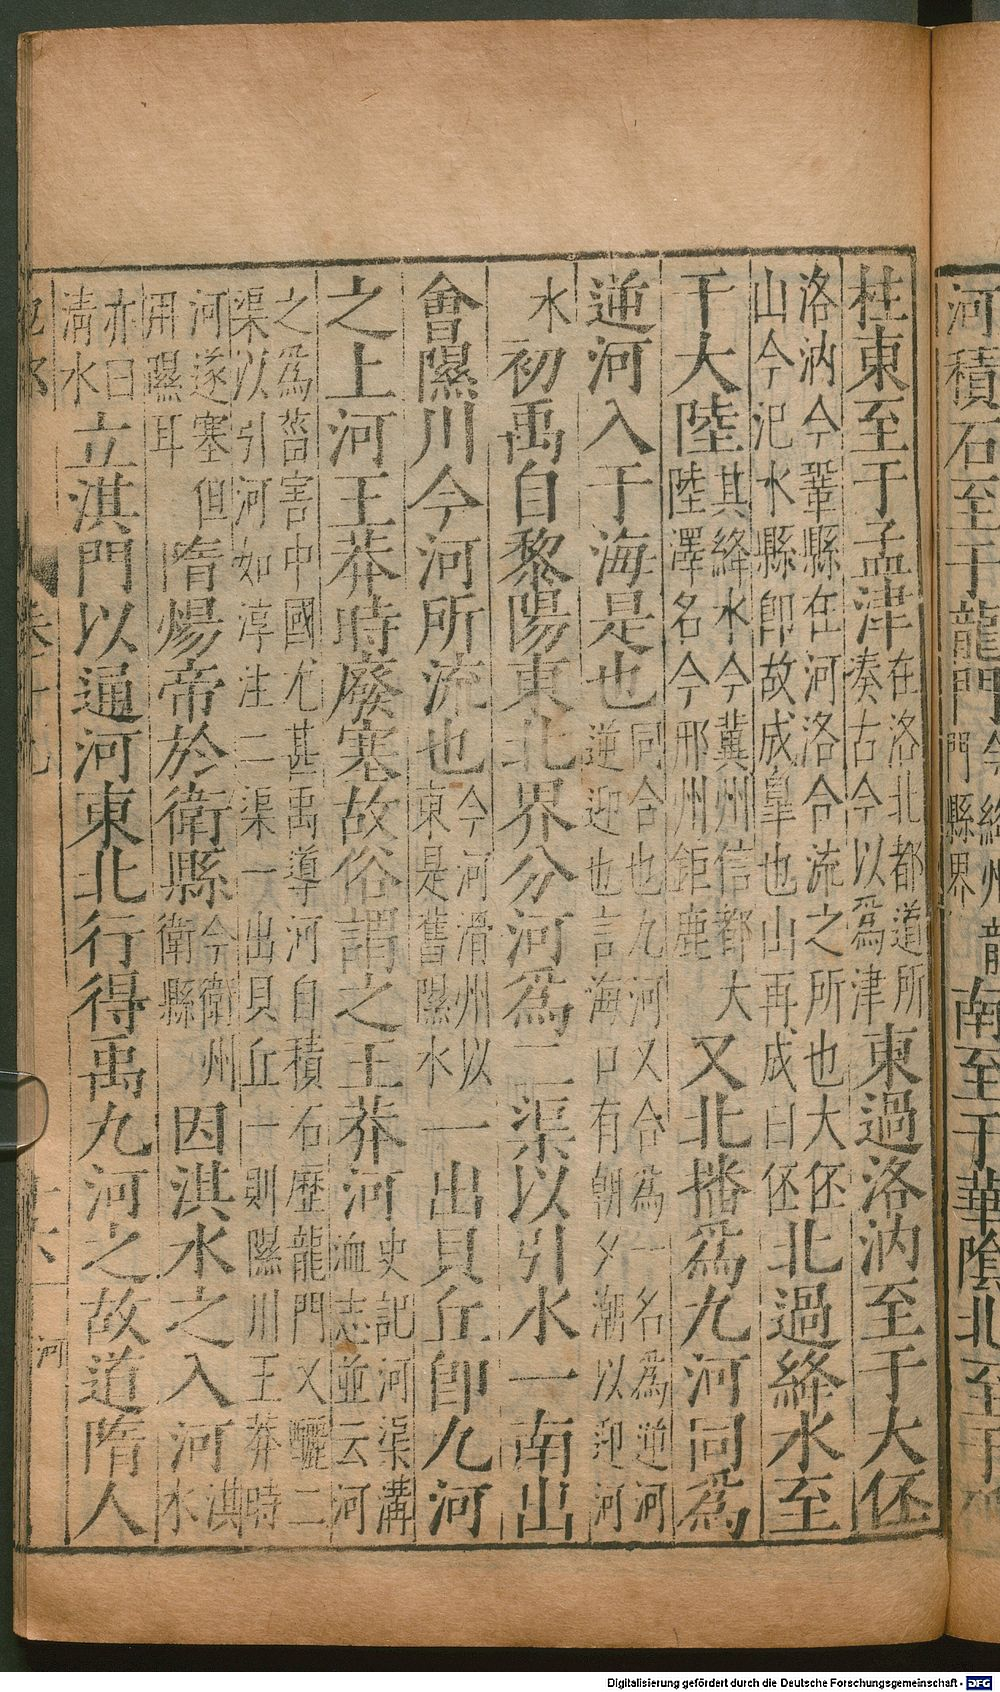 河積石至于龍門今絳州龍門縣界南至于華陰北至于砥
柱東至于孟津在洛北都道所湊古今以為津東過洛汭至于大伾
洛汭今鞏縣在河洛合流之所也大伾山今汜水縣即故成臯也山再成曰伾北過絳水至
于大陸其絳水今冀州信都大陸澤名今邢州鉅鹿又北播爲九河同爲
逆河入于海是也同合也九河又合為一名為逆河逆迎也言海口有朝夕潮以迎河
水初禹自黎陽東北界分河爲二渠以引水一南出
會隰川今河所流也今河滑州以東是舊隰水一出貝丘卽九河
之上河王莽時廢塞故俗謂之王莽河史記河渠溝洫志並云河
之為菑害中國尤甚禹導河自積石歷龍門又釃二渠以引河如淳注二渠一出貝丘一則隰川王莽時
河遂塞但用隰耳隋煬帝於衛縣今衛州衛縣因淇水之入河淇水
亦曰清水立淇門以通河東北行得禹九河之故道隋人
河
Digitalisierung gefördert durch die Deutsche Forschungsgemeinschaft - DFG